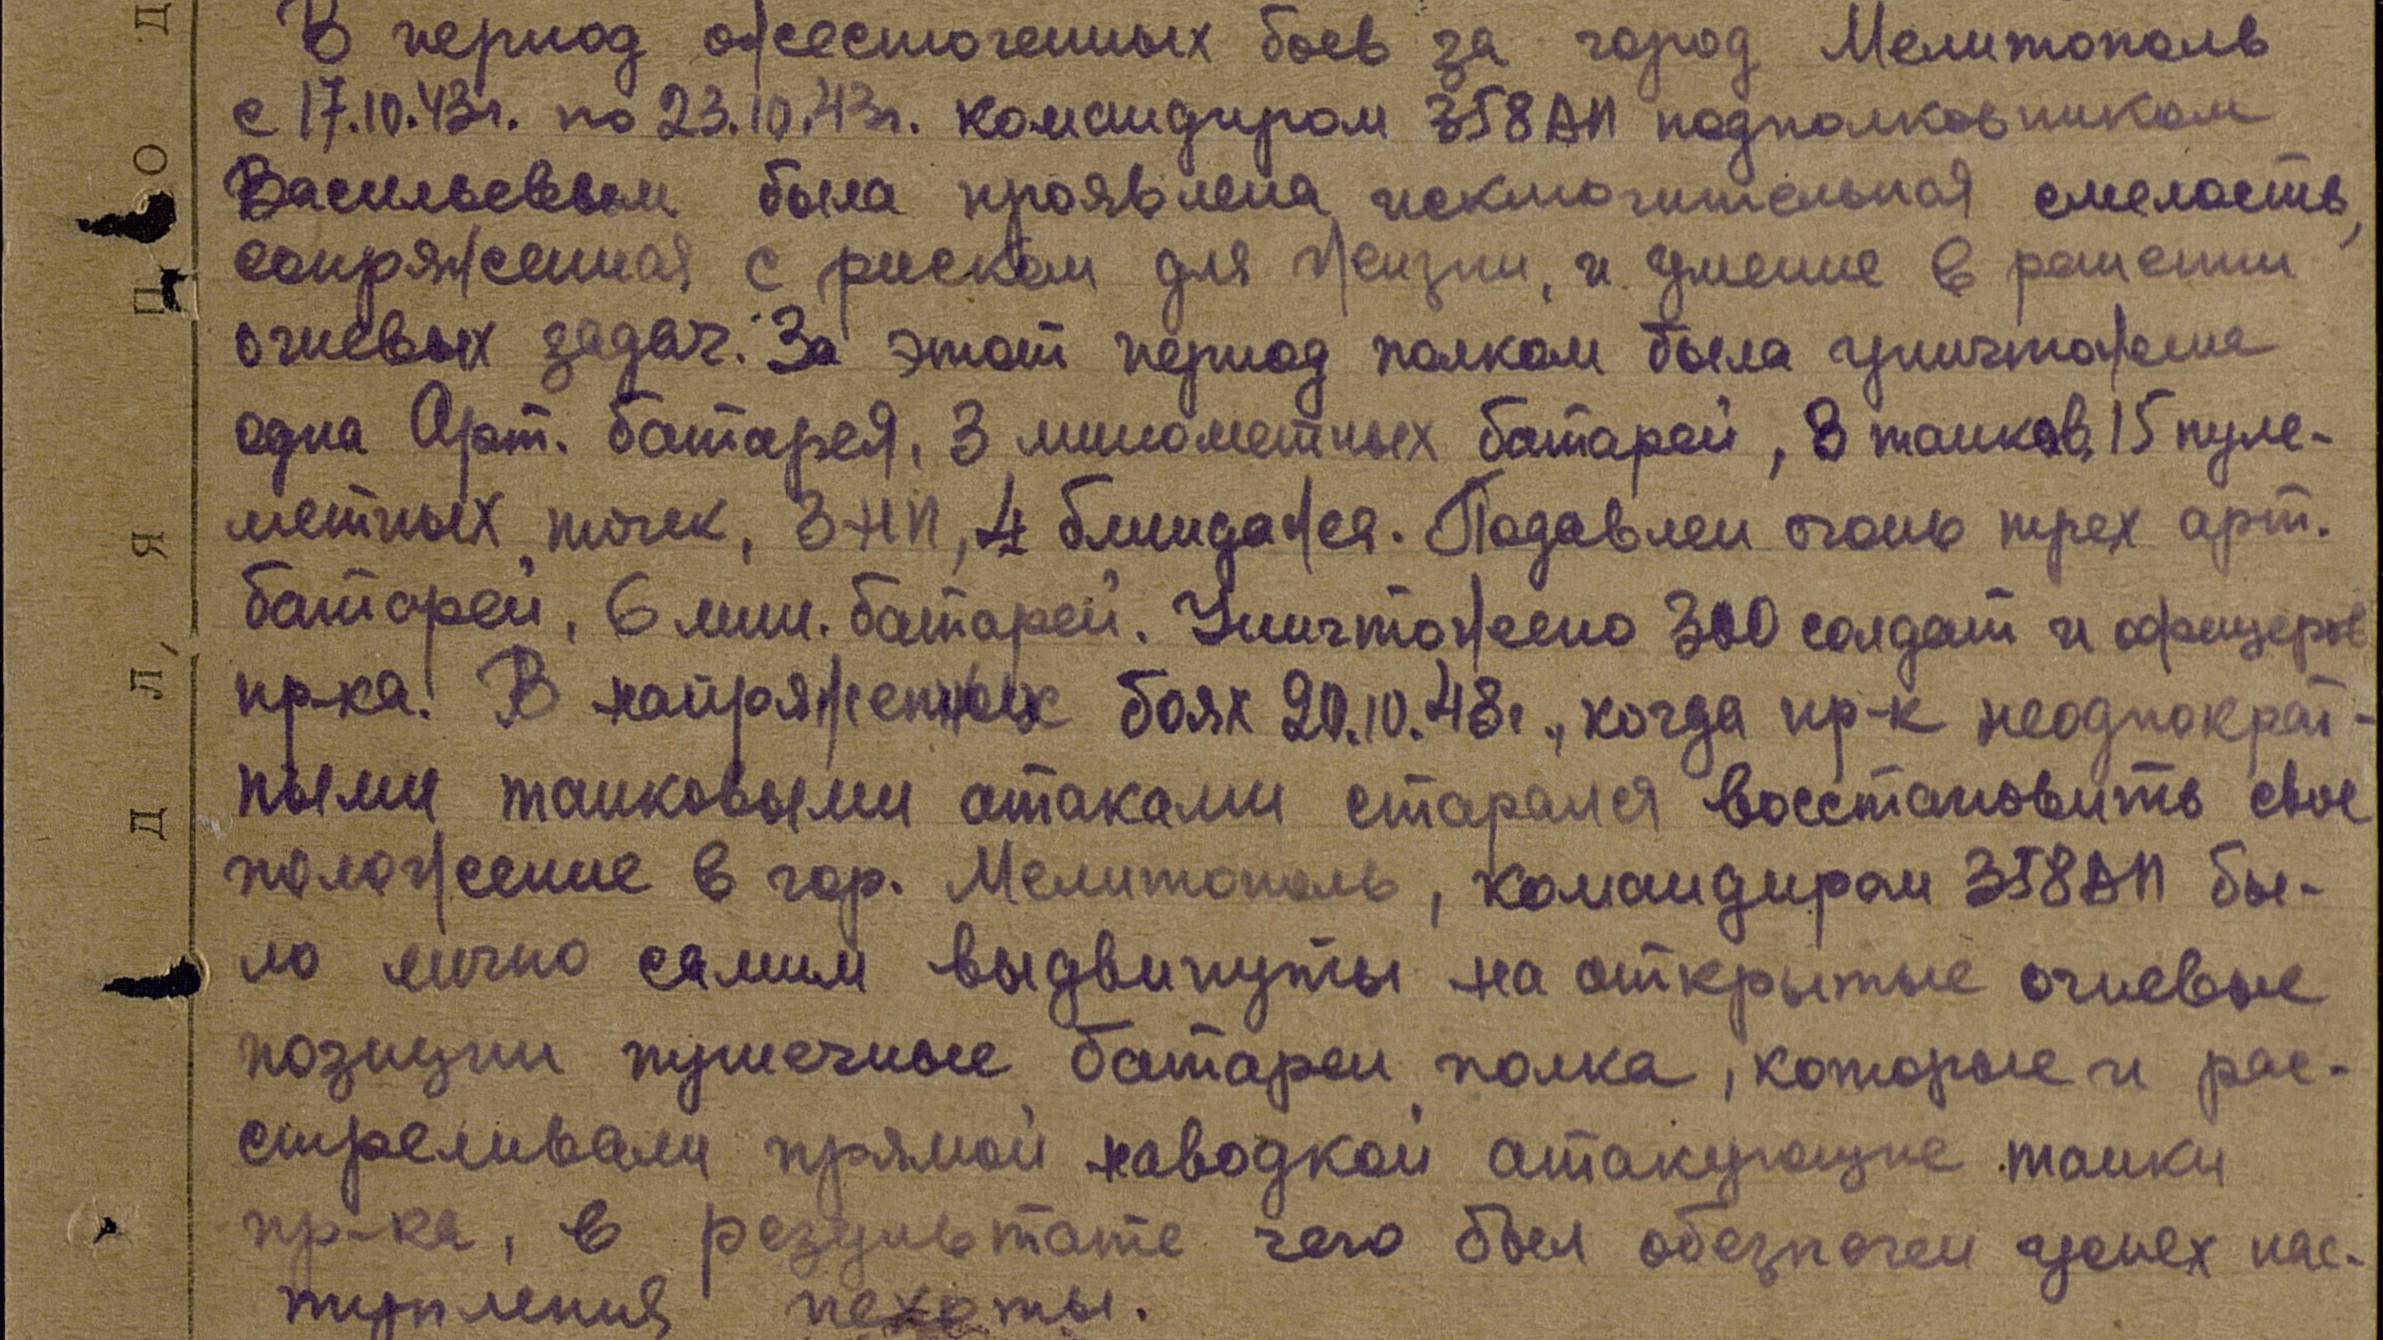 В период ожесточенных боев за город Мелитополь
с 17.10.43г. по 23.10.43г. командиром 358АП подполковником
Васильевым была проявлена исключительная смелость,
сопряженная с риском для жизни, и умение в решении
огневых задач. За этот период полком была уничтожена
одна Арт. батарея, 3 минометных батарей, 8 танков, 15 пуле-
метных точек, 3 НП, 4 блиндажа. Подавлен огонь трех арт.
батарей, 6 мин. батарей. Уничтожено 300 солдат и офицеров
пр-ка. В напряженных боях 20.10.43г., когда пр-к неоднократ-
ными танковыми атаками старался восстановить свое
положение в гор. Мелитополь, командиром 358АП бы-
ло лично самим выдвинуты на открытые огневые
позиции пушечные батареи полка, которые и рас-
стреливали прямой наводкой атакующие танки
пр-ка, в результате чего был обезпечен успех нас-
тупления пехоты.
ДЛЯ ПОД